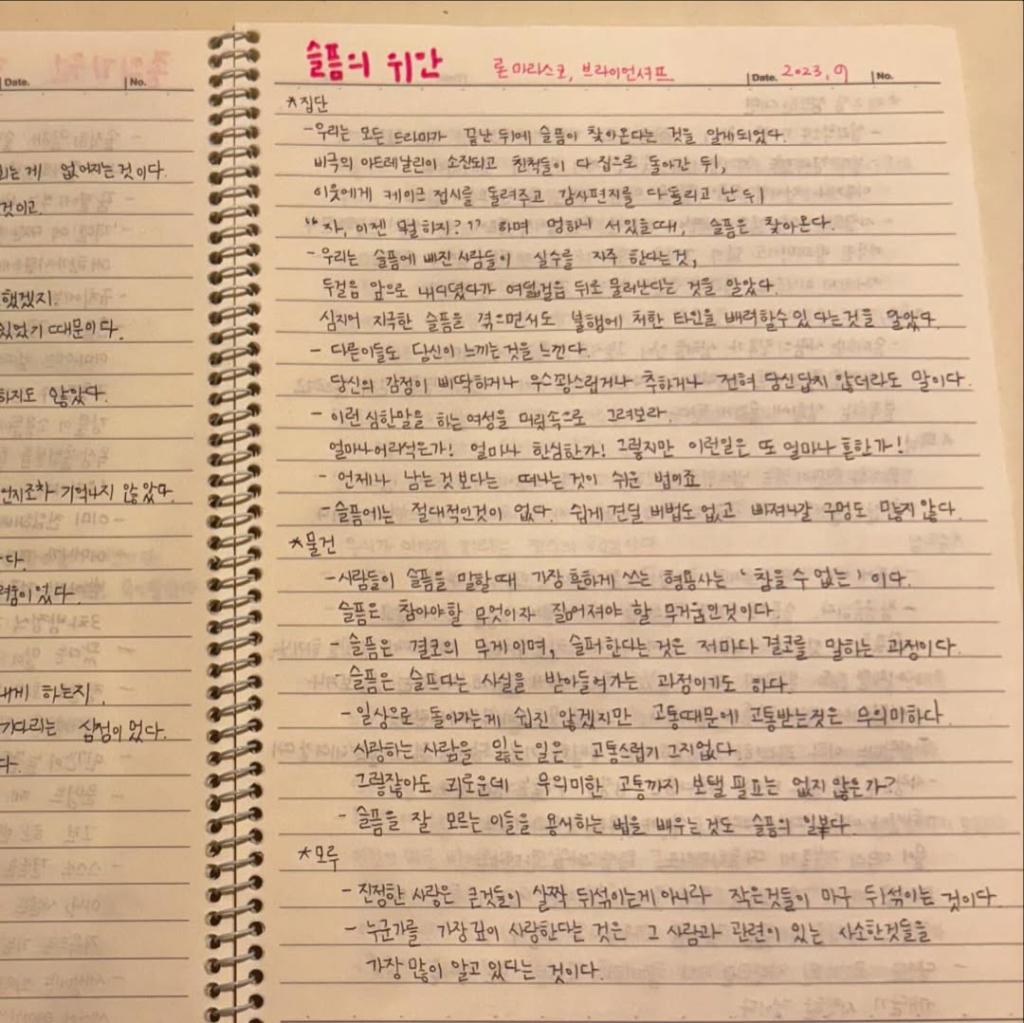 Date.
No.
회는게 없어지는것이다.
것이고.
했겠지.
있었기 때문이다.
하지도 않았다.
인지조차 기억나지 않았다.
다.
려움이었다.
내게 하는지.
기다리는 심정이었다.
다.
슬픔의 위안 론 마라스코, 브라이언셔프 Date. 2023. 9 No.
*집단
-우리는 모든 드라마가 끝난 뒤에 슬픔이 찾아온다는 것을 알게되었다.
비극의 아드레날린이 소진되고 친척들이 다 집으로 돌아간 뒤,
이웃에게 케이크 접시를 돌려주고 감사편지를 다 돌리고 난 뒤
"자, 이젠 뭘 하지?" 하며 멍하니 서있을때, 슬픔은 찾아온다.
-우리는 슬픔에 빠진 사람들이 실수를 자주 한다는것,
두걸음 앞으로 내디뎠다가 여덟걸음 뒤로 물러난다는 것을 알았다.
심지어 지극한 슬픔을 겪으면서도 불행에 처한 타인을 배려할수 있다는것을 알았다.
- 다른이들도 당신이 느끼는것을 느낀다.
당신의 감정이 삐딱하거나 우스꽝스럽거나 추하거나 전혀 당신답지 않더라도 말이다.
- 이런 심한말을 하는 여성을 머릿속으로 그려보라.
얼마나어리석은가! 얼마나 한심한가! 그렇지만 이런일은 또 얼마나 흔한가!
- 언제나 남는것보다는 떠나는것이 쉬운 법이죠
-슬픔에는 절대적인것이 없다. 쉽게 견딜 비법도 없고 빠져나갈 구멍도 많지 않다.
*물건
-사람들이 슬픔을 말할때 가장 흔하게 쓰는 형용사는 '참을 수 없는' 이다.
슬픔은 참아야할 무엇이자 짊어져야 할 무거움인것이다.
- 슬픔은 결코의 무게이며, 슬퍼한다는것은 저마다 결코를 말하는 과정이다.
슬픔은 슬프다는 사실을 받아들여가는 과정이기도 하다.
-일상으로 돌아가는게 쉽진 않겠지만 고통때문에 고통받는것은 무의미하다.
사랑하는 사람을 잃는 일은 고통스럽기 그지없다.
그렇잖아도 괴로운데 무의미한 고통까지 보탤 필요는 없지 않은가?
- 슬픔을 잘 모르는 이들을 용서하는 법을 배우는것도 슬픔의 일부다.
*모루
-진정한 사랑은 큰것들이 살짝 뒤섞이는게 아니라 작은것들이 마구 뒤섞이는 것이다.
- 누군가를 가장깊이 사랑한다는 것은 그 사람과 관련이 있는 사소한것들을
가장 많이 알고 있다는 것이다.